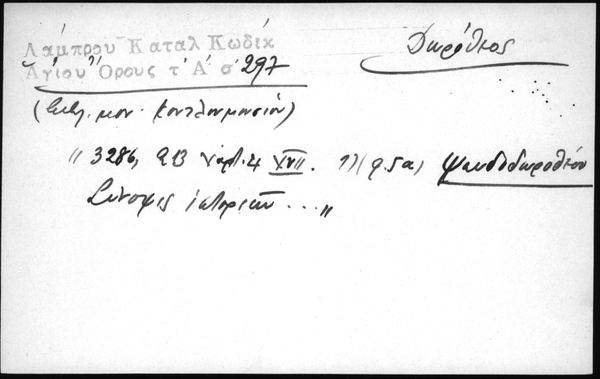 Λάμπρου Καταλ Κωδίκ
Ἁγίου Ὄρους τ' Α' σ' 297
Δωρόθεος
(Βιβλ. μον. Κουτλουμουσίου)
" 3286, 213 χαρτ. 4 XVII. 1) (φ. 5α) Ψευδοδωροθέου
Σύνοψις ἱστοριῶν ... "